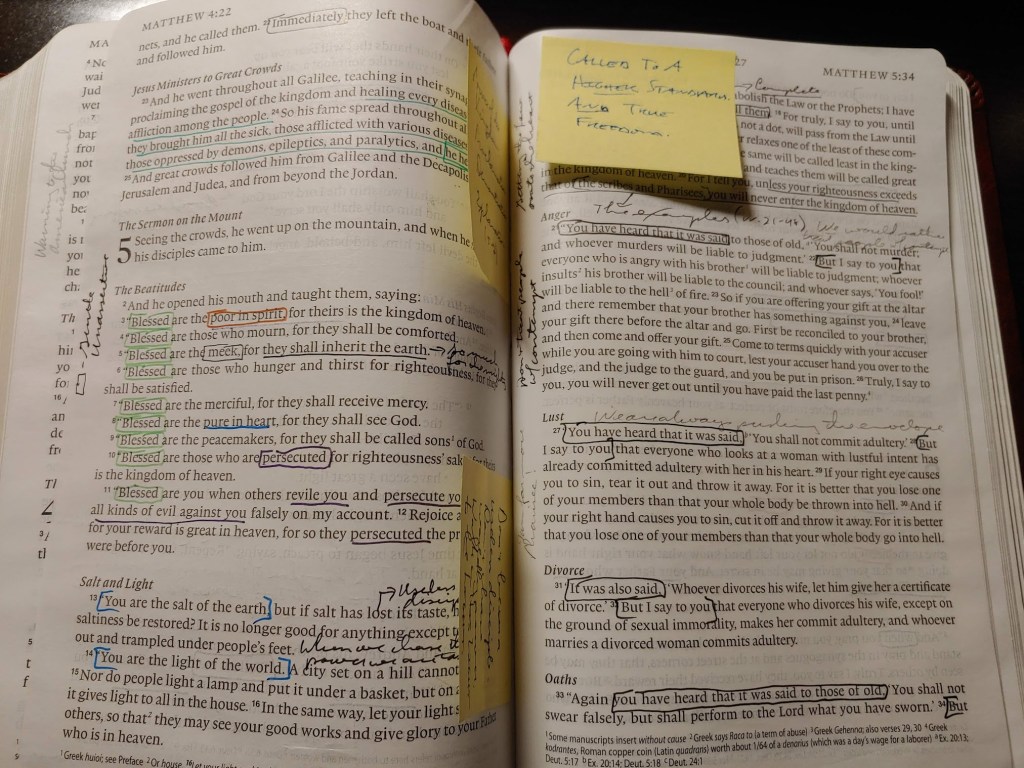 MATTHEW 4:22
Immediately they left the boat and
nets, and he called them.
and followed him.
Jesus Ministers to Great Crowds
23 And he went throughout all Galilee, teaching in their
proclaiming the gospel of the kingdom and healing every
affliction among the people. 24 So his fame spread throughout
they brought him all the sick, those afflicted with various
those oppressed by demons, epileptics, and paralytics, and he
25 And great crowds followed him from Galilee and the Decapolis
Jerusalem and Judea, and from beyond the Jordan.
The Sermon on the Mount
5 Seeing the crowds, he went up on the mountain, and when he
his disciples came to him.
The Beatitudes
2 And he opened his mouth and taught them, saying:
3 "Blessed are the poor in spirit, for theirs is the kingdom of heaven.
4 "Blessed are those who mourn, for they shall be comforted.
5 "Blessed are the meek, for they shall inherit the earth.
6 "Blessed are those who hunger and thirst for righteousness, for they
shall be satisfied.
7 "Blessed are the merciful, for they shall receive mercy.
8 "Blessed are the pure in heart, for they shall see God.
9 "Blessed are the peacemakers, for they shall be called sons of God.
10 "Blessed are those who are persecuted for righteousness'
is the kingdom of heaven.
11 "Blessed are you when others revile you and persecute
all kinds of evil against you falsely on my account. 12 Rejoice
for your reward is great in heaven, for so they persecuted the
were before you.
Salt and Light
13 "You are the salt of the earth, but if salt has lost its taste,
saltiness be restored? It is no longer good for anything except
out and trampled under people's feet.
14 "You are the light of the world. A city set on a hill cannot
15 Nor do people light a lamp and put it under a basket, but on
it gives light to all in the house. 16 In the same way, let your light
others, so that they may see your good works and give glory to your Father
who is in heaven.
1 Greek huioi; see Preface 2 Or house
CALLED TO A
HIGHER STANDARD.
AND TRUE
FREEDOM.
27
MATTHEW 5:34
abolish the Law or the Prophets; I have
them. 18 For truly, I say to you, until
not a dot, will pass from the Law until
relaxes one of the least of these com-
same will be called least in the king-
and teaches them will be called great
in the kingdom of heaven. 20 For I tell you, unless your righteousness exceeds
that of the scribes and Pharisees, you will never enter the kingdom of heaven.
Anger
The examples
21 "You have heard that it was said to those of old, 'You shall not murder;
and whoever murders will be liable to judgment.' 22 But I say to you that
everyone who is angry with his brother will be liable to judgment; whoever
insults his brother will be liable to the council; and whoever says, 'You fool!'
will be liable to the hell of fire. 23 So if you are offering your gift at the altar
and there remember that your brother has something against you, 24 leave
your gift there before the altar and go. First be reconciled to your brother,
and then come and offer your gift. 25 Come to terms quickly with your accuser
while you are going with him to court, lest your accuser hand you over to the
judge, and the judge to the guard, and you be put in prison. 26 Truly, I say to
you, you will never get out until you have paid the last penny.
Lust
We are always pushing the envelope
27 "You have heard that it was said, 'You shall not commit adultery.' 28 But
I say to you that everyone who looks at a woman with lustful intent has
already committed adultery with her in his heart. 29 If your right eye causes
you to sin, tear it out and throw it away. For it is better that you lose one
of your members than that your whole body be thrown into hell. 30 And if
your right hand causes you to sin, cut it off and throw it away. For it is better
that you lose one of your members than that your whole body go into hell.
Divorce
31 "It was also said, 'Whoever divorces his wife, let him give her a certificate
of divorce.' 32 But I say to you that everyone who divorces his wife, except on
the ground of sexual immorality, makes her commit adultery, and whoever
marries a divorced woman commits adultery.
Oaths
33 "Again you have heard that it was said to those of old, 'You shall not
swear falsely, but shall perform to the Lord what you have sworn.' 34 But
1 Some manuscripts insert without cause 2 Greek says Raca to (a term of abuse) 3 Greek Gehenna; also verses 29, 30 4 Greek
kodrantes, Roman copper coin (Latin quadrans) worth about 1/64 of a denarius (which was a day's wage for a laborer) a Ex. 20:13;
Deut. 5:17 b Ex. 20:14; Deut. 5:18 c Deut. 24:1